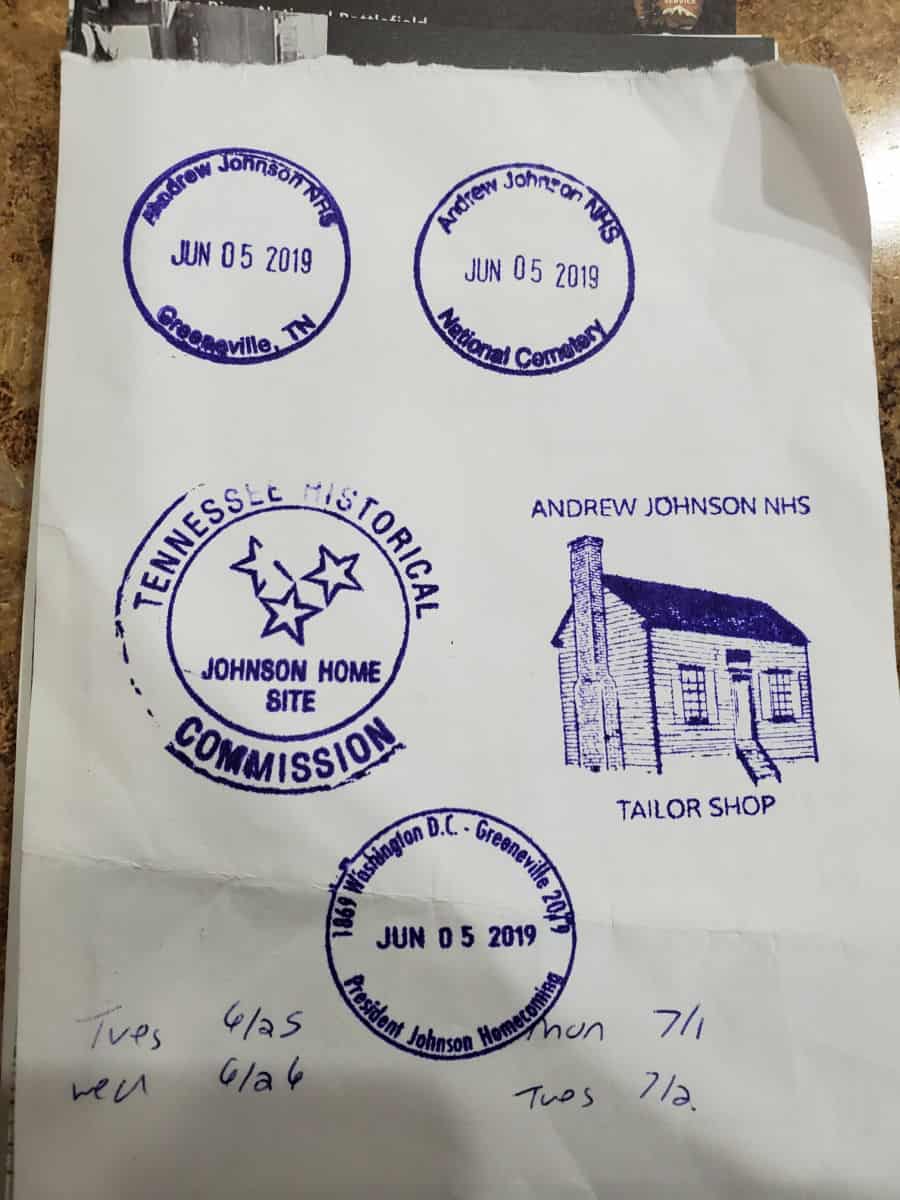 National Battlefield
SERVICE
Andrew Johnson NHS
JUN 05 2019
Greeneville, TN
Andrew Johnson NHS
JUN 05 2019
National Cemetery
TENNESSEE HISTORICAL
JOHNSON HOME
SITE
COMMISSION
ANDREW JOHNSON NHS
TAILOR SHOP
1869 Washington D.C. - Greeneville 2019
JUN 05 2019
President Johnson Homecoming
Tues 6/25
Wed 6/26
Mon 7/1
Tues 7/2.